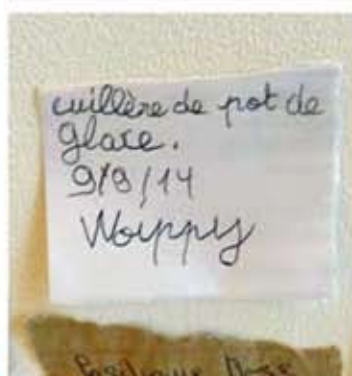 cuillère de pot de
glace.
9/9/14
Woippy